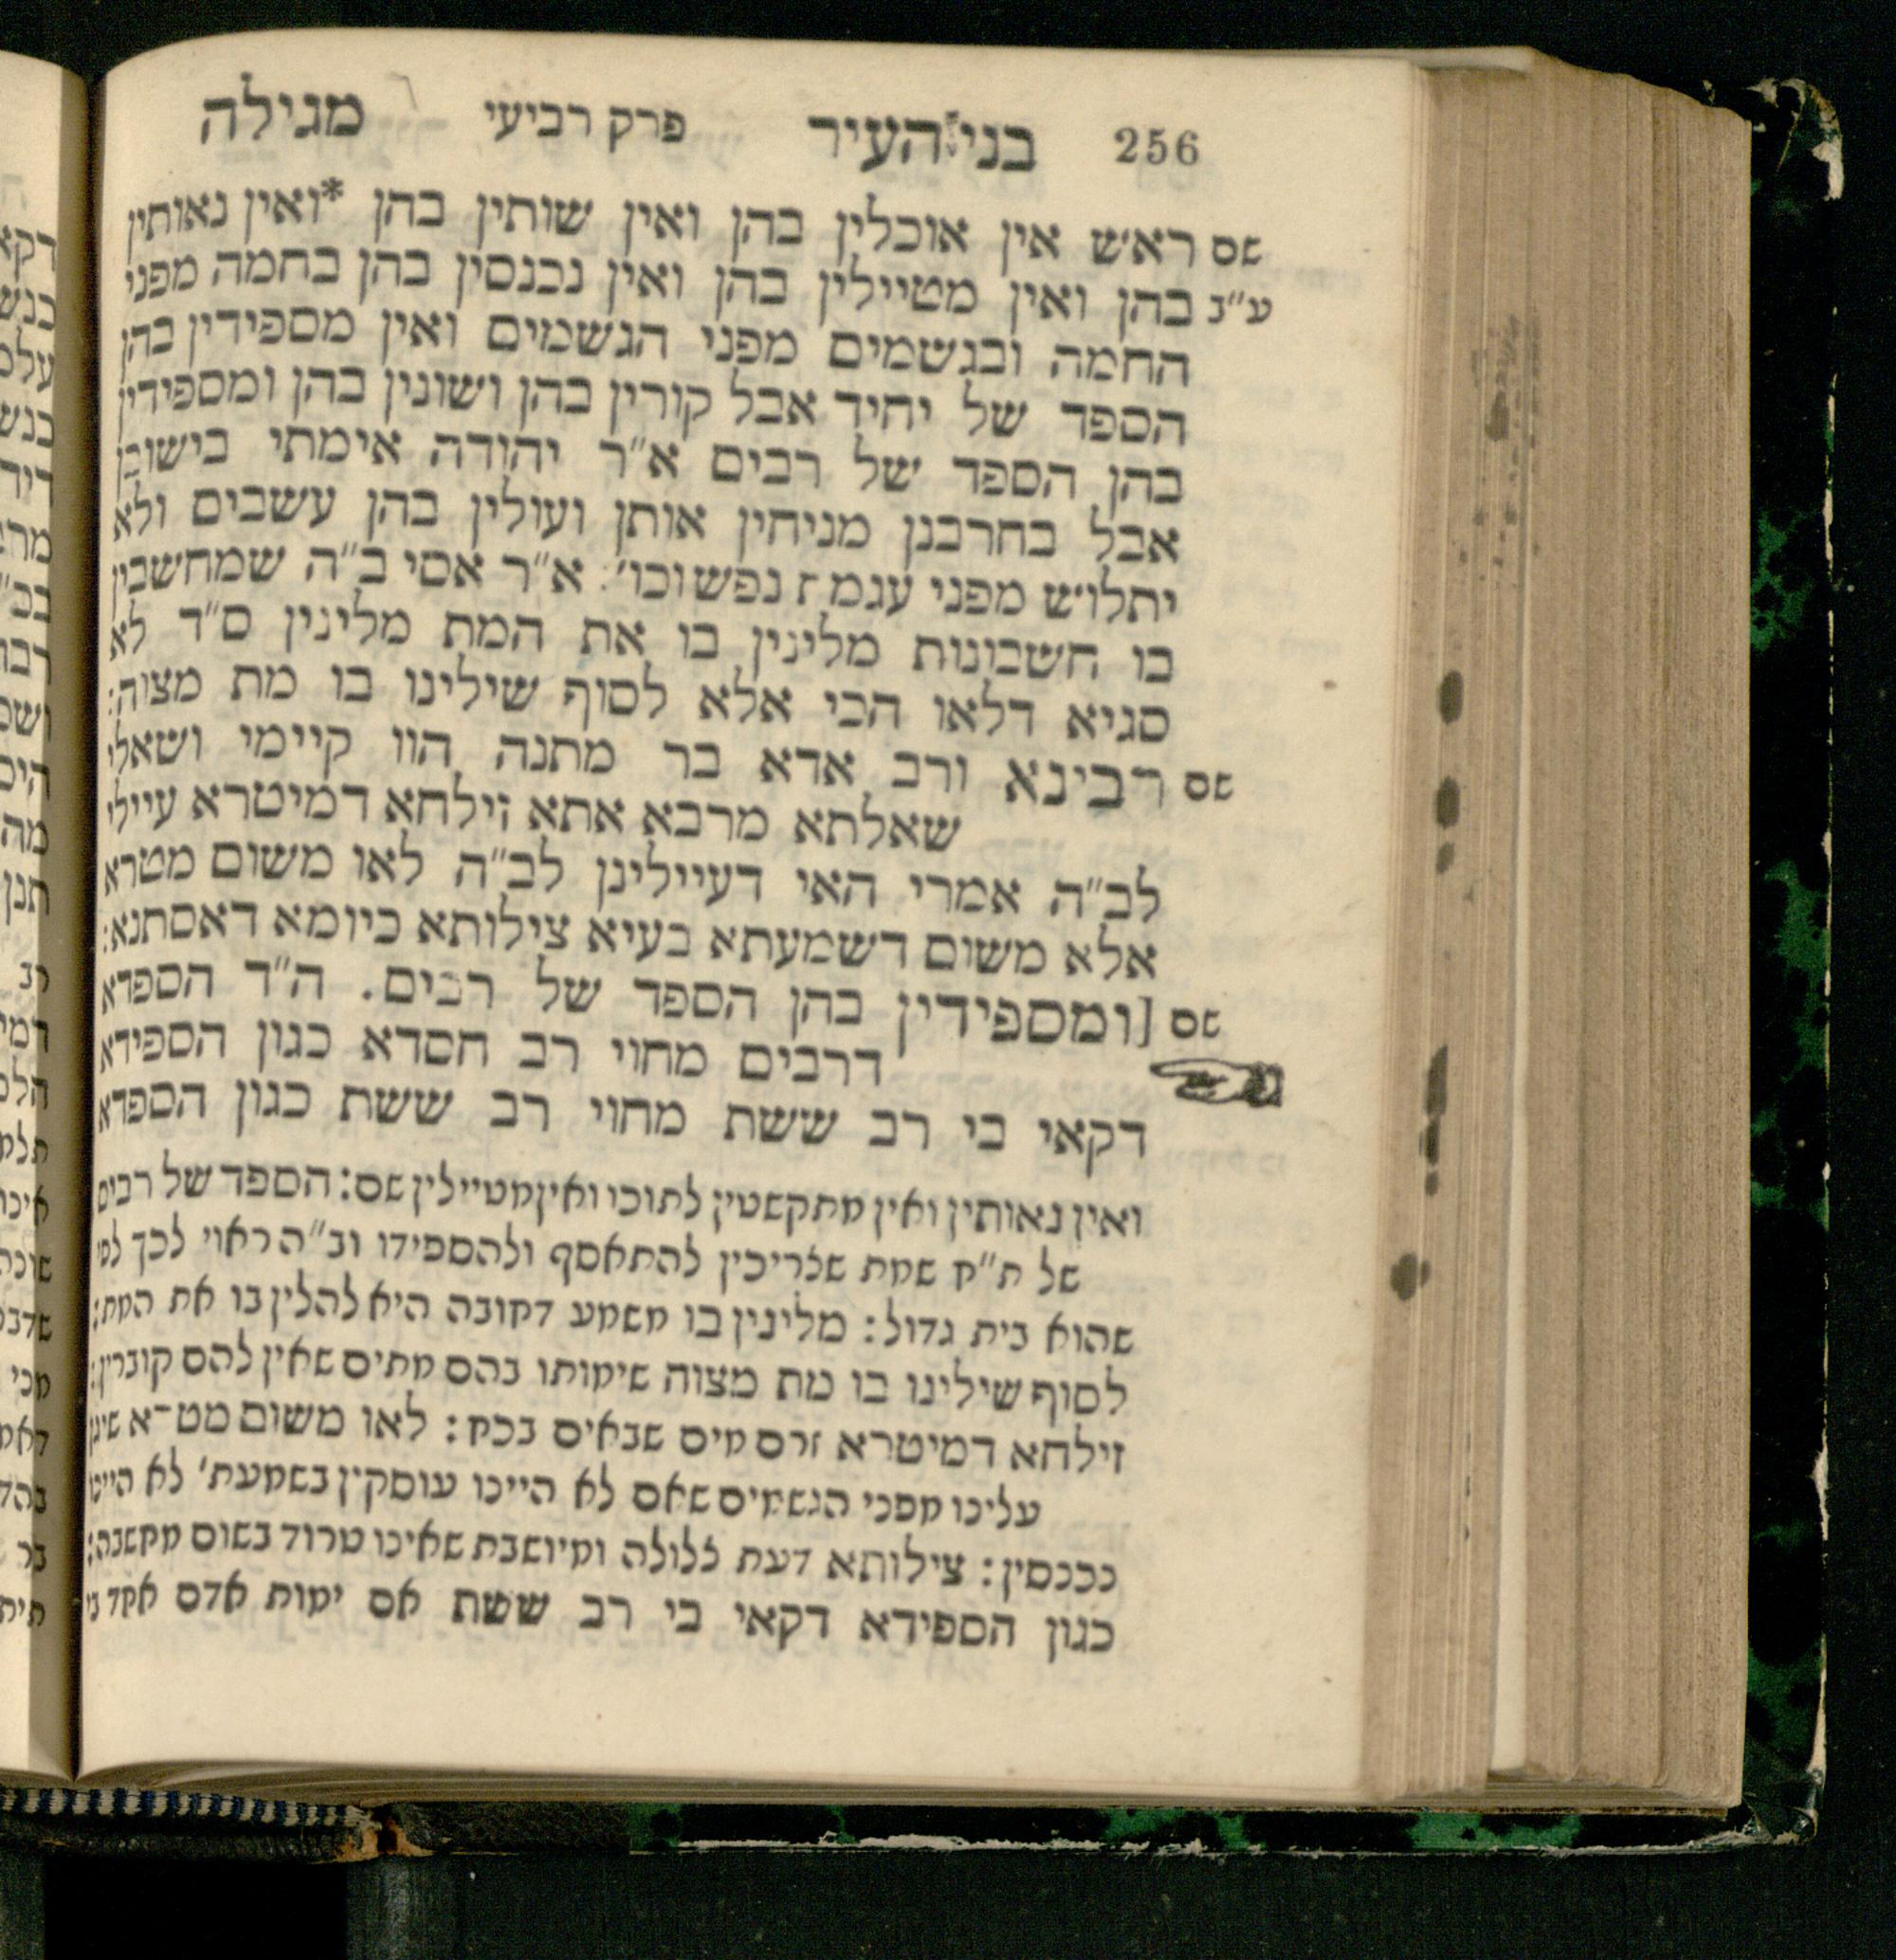 256 בני העיר פרק רביעי מגילה
שם ראש אין אוכלין בהן ואין שותין בהן *ואין נאותין
ע"ב בהן ואין מטיילין בהן ואין נכנסין בהן בחמה מפני
החמה ובגשמים מפני הגשמים ואין מספידין בהן
הספד של יחיד אבל קורין בהן ושונין בהן ומספידין
בהן הספד של רבים א"ר יהודה אימתי בישובן
אבל בחרבנן מניחין אותן ועולין בהן עשבים ולא
יתלוש מפני עגמת נפש וכו': א"ר אסי ב"ה שמחשבין
בו חשבונות מלינין בו את המת מלינין ס"ד לא
סגיא דלאו הכי אלא לסוף שילינו בו מת מצוה:
שם רבינא ורב אדא בר מתנה הוו קיימי ושאלי
שאלתא מרבא אתא זילחא דמיטרא עיילי
לב"ה אמרי האי דעיילינן לב"ה לאו משום מטרא
אלא משום דשמעתא בעיא צילותא כיומא דאסתנא:
שם [ומספידין בהן הספד של רבים. ה"ד הספדא
דרבים מחוי רב חסדא כגון הספידא
דקאי בי רב ששת מחוי רב ששת כגון הספדא
ואין נאותין ואין מתקשטין לתוכו ואין מטיילין שם: הספד של רבים
של ת"ח שמת שצריכין להתאסף ולהספידו וב"ה ראוי לכך לפי
שהוא בית גדול: מלינין בו משמע דחובה היא להלין בו את המת:
לסוף שילינו בו מת מצוה שימותו בהם מתים שאין להם קוברין:
זילחא דמיטרא זרם מים שבאים בכח: לאו משום מטרא שיגן
עלינו מפני הגשמים שאם לא היינו עוסקין בשמעת' לא היינו
נכנסין: צילותא דעת צלולה ומיושבת שאינו טרוד בשום מחשבה:
כגון הספידא דקאי בי רב ששת אם ימות אדם אחד